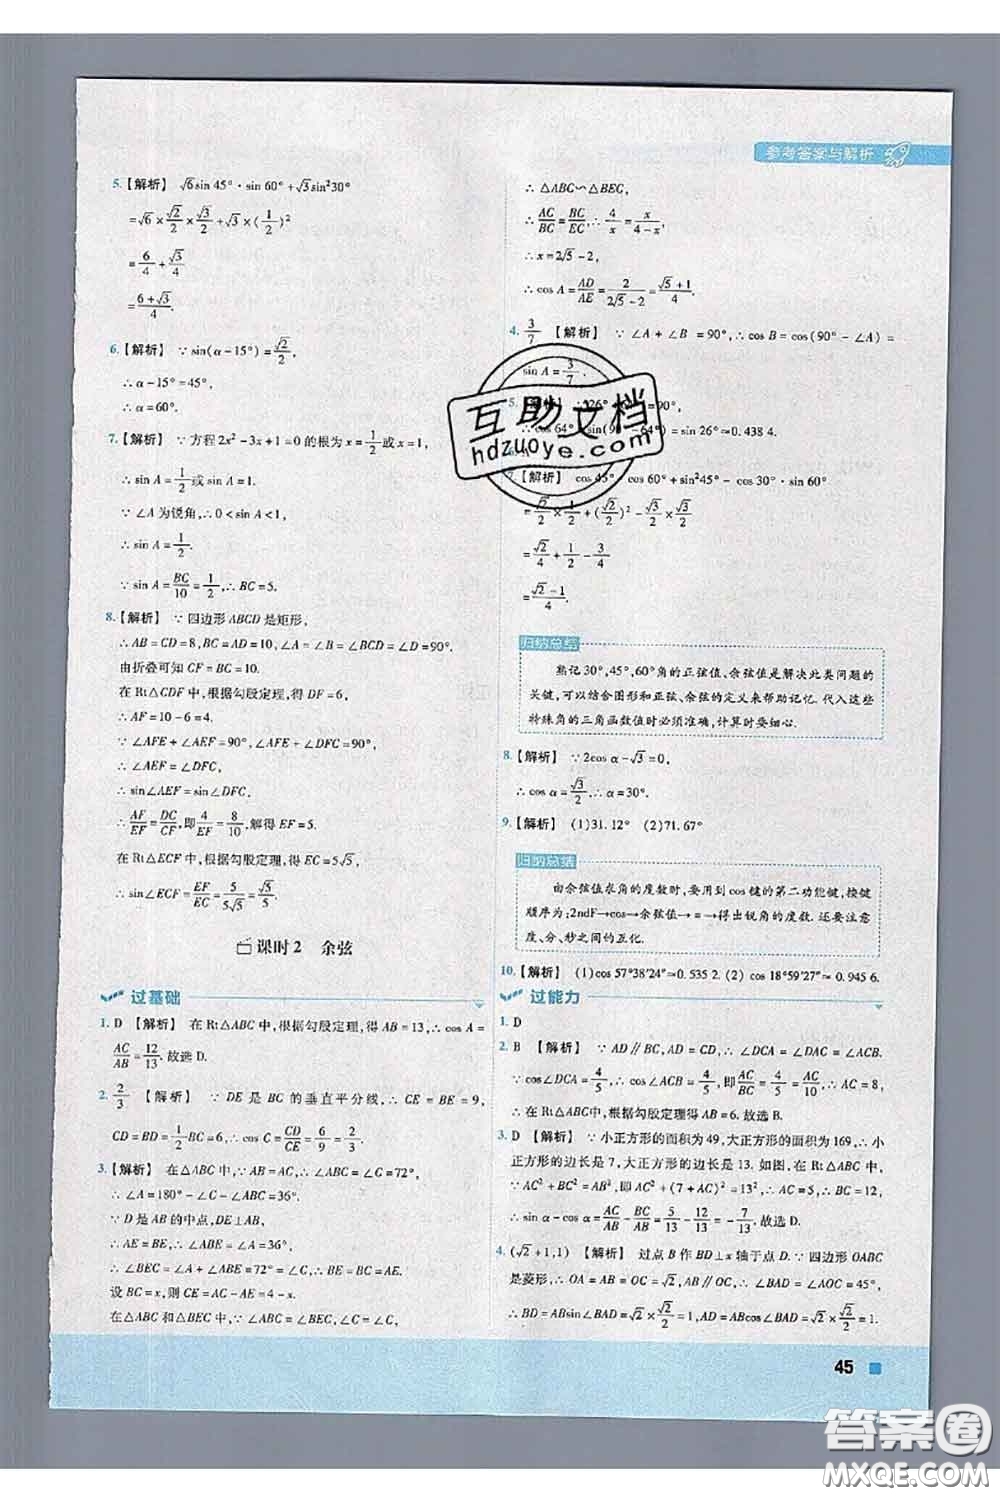 参考答案与解析
5.【解析】 √6sin 45°·sin 60°+√3sin²30°
=√6×√2/2×√3/2+√3×(1/2)²
=6/4+√3/4
=(6+√3)/4.
6.【解析】 ∵sin(α-15°)=√2/2,
∴α-15°=45°,
∴α=60°.
7.【解析】 ∵方程2x²-3x+1=0的根为x=1/2或x=1,
∴sin A=1/2或sin A=1.
∵∠A为锐角,∴0<sin A<1,
∴sin A=1/2.
∵sin A=BC/10=1/2,∴BC=5.
8.【解析】 ∵四边形ABCD是矩形,
∴AB=CD=8,BC=AD=10,∠A=∠B=∠BCD=∠D=90°.
由折叠可知CF=BC=10.
在Rt△CDF中,根据勾股定理,得DF=6,
∴AF=10-6=4.
∵∠AFE+∠AEF=90°,∠AFE+∠DFC=90°,
∴∠AEF=∠DFC,
∴sin∠AEF=sin∠DFC,
∴AF/EF=DC/CF,即4/EF=8/10,解得EF=5.
在Rt△ECF中,根据勾股定理,得EC=5√5,
∴sin∠ECF=EF/EC=5/5√5=√5/5.
课时2 余弦
过基础
1. D 【解析】 在Rt△ABC中,根据勾股定理,得AB=13,∴cos A=
AC/AB=12/13.故选D.
2. 2/3 【解析】 ∵DE是BC的垂直平分线,∴CE=BE=9,
CD=BD=1/2BC=6,∴cos C=CD/CE=6/9=2/3.
3.【解析】 在△ABC中,∵∠ABC=∠C=72°,
∴∠A=180°-∠C-∠ABC=36°.
∵D是AB的中点,DE⊥AB,
∴AE=BE,∴∠ABE=∠A=36°,
∴∠BEC=∠A+∠ABE=72°=∠C,∴BC=BE=AE.
设BC=x,则CE=AC-AE=4-x.
在△ABC和△BEC中,∵∠ABC=∠BEC,∠C=∠C,
∴△ABC∽△BEC,
∴AC/BC=BC/EC,∴4/x=x/(4-x),
∴x=2√5-2,
∴cos A=AD/AE=2/(2√5-2)=(√5+1)/4.
4. 3/7 【解析】 ∵∠A+∠B=90°,∴cos B=cos(90°-∠A)=
sin A=3/7.
5.【解析】 ∵26°=90°,
∴cos 64°=sin(90°-64°)=sin 26°≈0.438 4.
6. A
7.【解析】 cos 45°·cos 60°+sin²45°-cos 30°·sin 60°
=√2/2×1/2+(√2/2)²-√3/2×√3/2
=√2/4+1/2-3/4
=(√2-1)/4.
归纳总结
熟记30°,45°,60°角的正弦值、余弦值是解决此类问题的
关键,可以结合图形和正弦、余弦的定义来帮助记忆.代入这些
特殊角的三角函数值时必须准确,计算时要细心.
8.【解析】 ∵2cos α-√3=0,
∴cos α=√3/2,∴α=30°.
9.【解析】 (1)31.12° (2)71.67°
归纳总结
由余弦值求角的度数时,要用到cos键的第二功能键,按键
顺序为:2ndF→cos→余弦值→=→得出锐角的度数.还要注意
度、分、秒之间的互化.
10.【解析】 (1)cos 57°38′24″≈0.535 2. (2) cos 18°59′27″≈0.945 6.
过能力
1. D
2. B 【解析】 ∵AD∥BC,AD=CD,∴∠DCA=∠DAC=∠ACB.
∵cos∠DCA=4/5,∴cos∠ACB=4/5,即AC/BC=4/5=AC/10,∴AC=8,
∴在Rt△ABC中,根据勾股定理得AB=6.故选B.
3. D 【解析】 ∵小正方形的面积为49,大正方形的面积为169,∴小
正方形的边长是7,大正方形的边长是13.如图,在Rt△ABC中,
∵AC²+BC²=AB²,即AC²+(7+AC)²=13²,∴AC=5,∴BC=12,
∴sin α-cos α=AC/AB-BC/AB=5/13-12/13=-7/13.故选D.
4. (√2+1,1) 【解析】 过点B作BD⊥x轴于点D.∵四边形OABC
是菱形,∴OA=AB=OC=√2,AB∥OC,∴∠BAD=∠AOC=45°,
∴BD=ABsin∠BAD=√2×√2/2=1,AD=ABcos∠BAD=√2×√2/2=1.
45
互助文档
hdzuoye.com
答案圈
MXQE.COM